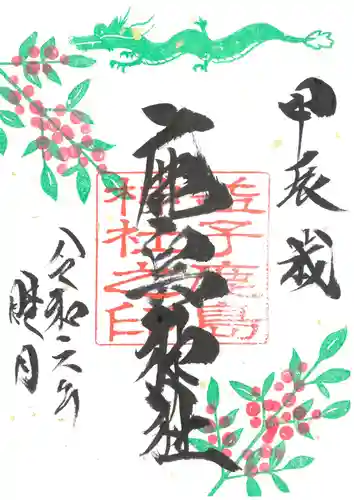 甲辰歳
鹿島神社
益子鹿島
神社之印
令和六年
睦月